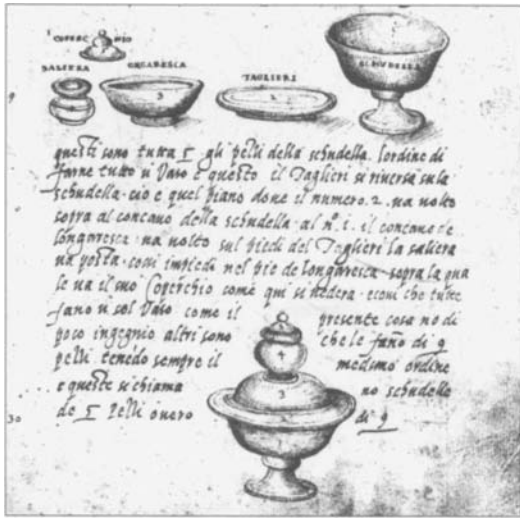 COPERCHIO
SALIERA
ONGARESCA
TAGLIERI
SCHUDELLA
3
2
questi sono tutta 5 gli pelli della schudella. lordine di
farne tutto ũ Vaso e questo il Taglieri si riversa sula
schudella. cio e quel piano dove il numero. 2. va volto
sopra al concavo della schudella al n°. 1. il concavo de
longaresca va volto sul piedi del Taglieri la saliera
va posta. cosi impiedi nel pie de longaresca sopra la qua
le va il suo Coperchio come qui si vedera. ecovi che tutte
fano ũ sol Vaso come il presente cosa no di
poco ingegnio altri sono che le fano di 9
pelli. tenedo sempre il medsmo ordine
e queste si chiama no schudelle
de 5 pelli overo di 9
4
3
2
30